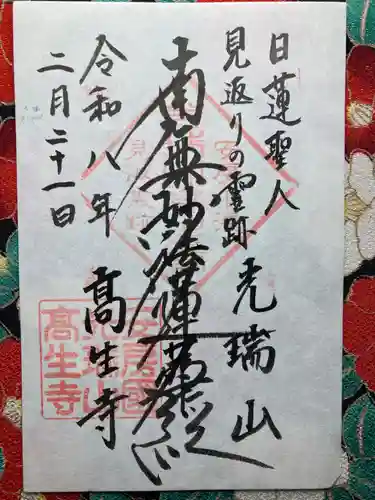 日蓮聖人
見返りの霊跡
光瑞山
南無妙法蓮華経
令和八年
髙生寺
二月二十一日
安房國
光瑞山
髙生寺